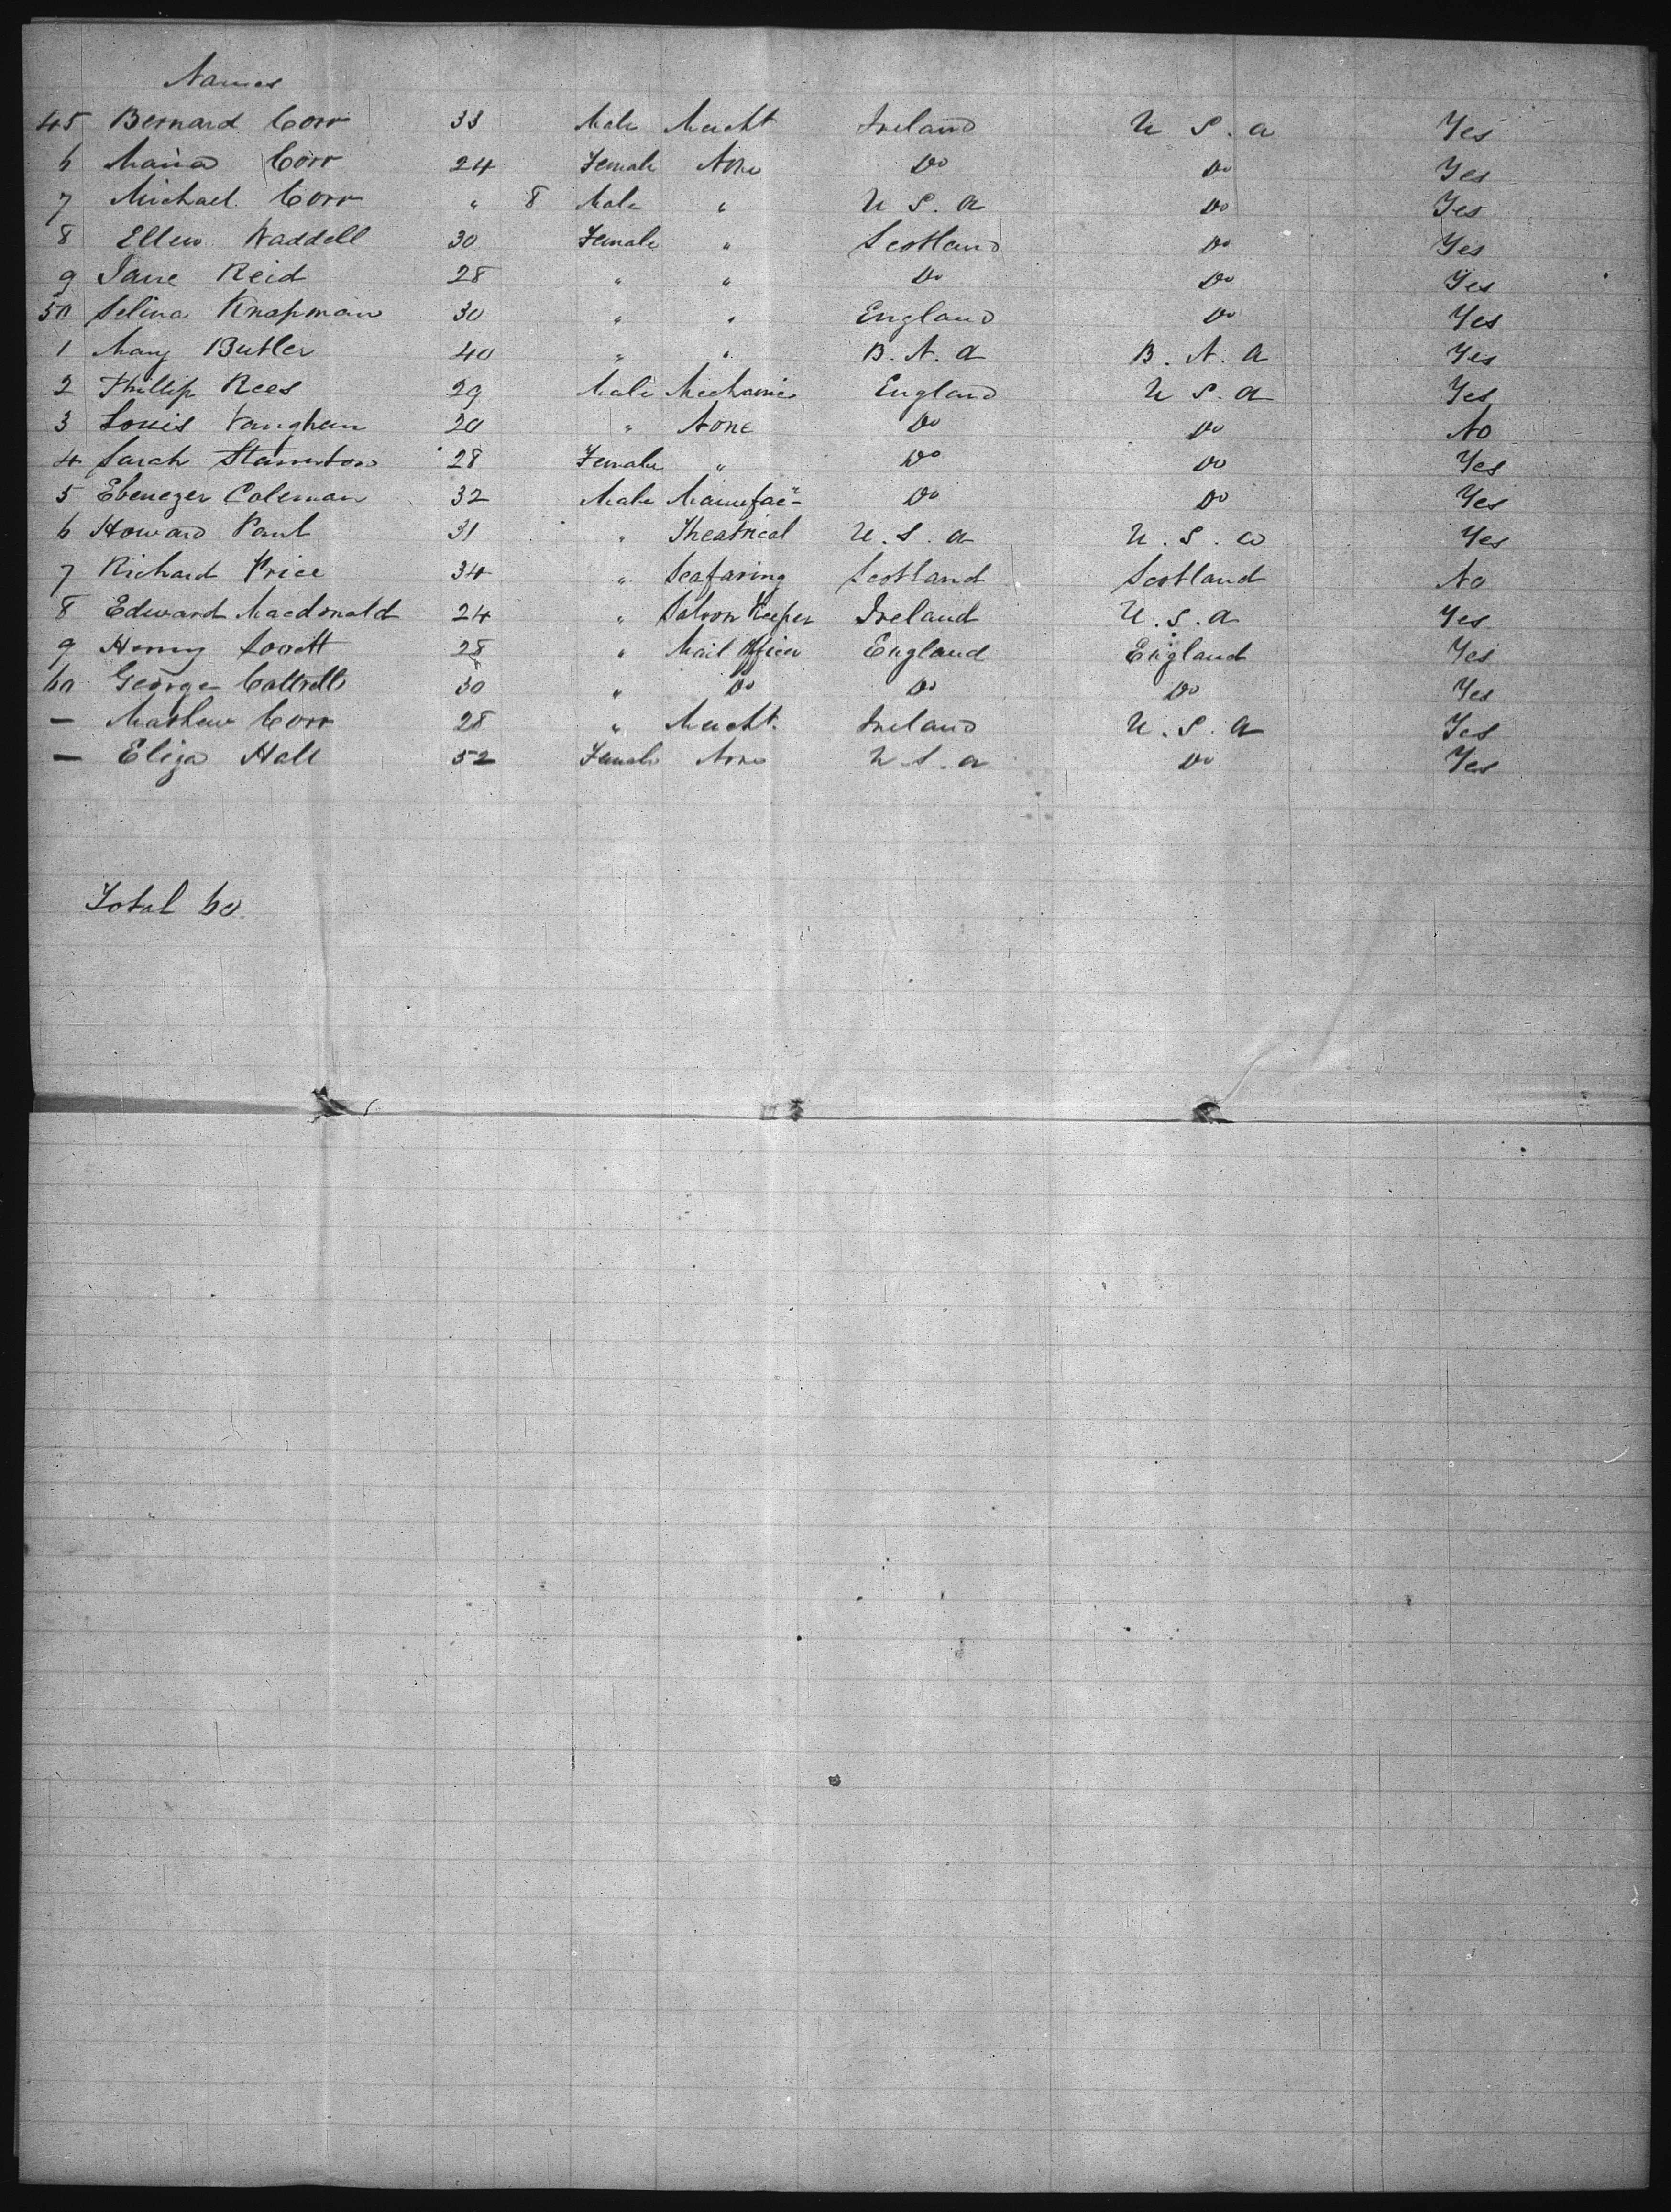 Names
45 Bernard Corr 33 Male Mercht Ireland U S. a Yes
6 Maria Corr 24 Female None Do Do Yes
7 Michael Corr " 8 Male " U S. a Do Yes
8 Ellen Waddell 30 Female " Scotland Do Yes
9 Jane Reid 28 " " Do Do Yes
50 Selina Knapman 30 " " England Do Yes
1 Mary Butler 40 " " B. N. A B. N. A Yes
2 Phillip Rees 29 Male Mechanic England U S. a Yes
3 Louis Vaughan 20 " None Do Do No
4 Sarah 28 Female " Do Do Yes
5 Ebenezer Coleman 32 Male Manufac Do Do Yes
6 Howard Paul 31 " Theatrical U. S. a U. S. a Yes
7 Richard Price 34 " Seafaring Scotland Scotland No
8 Edward Macdonald 24 " Saloon Keeper Ireland U. S. a Yes
9 Henry 28 " Mail Officer England England Yes
60 George 30 " Do Do Do Yes
— Mathew Corr 28 " Mercht. Ireland U. S. a Yes
— Eliza Hall 52 Female None U. S. a Do Yes
Total 60